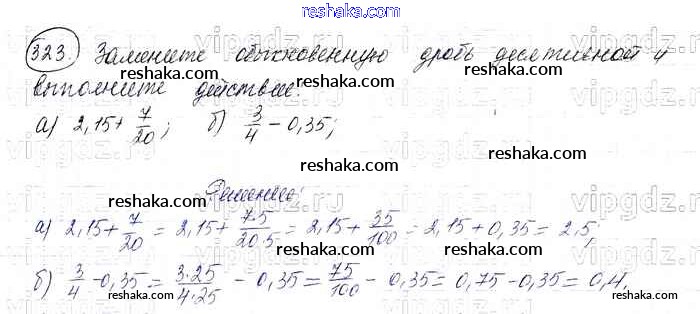 reshaka.com
323. Замените обыкновенную дробь десятичной и
reshaka.com reshaka.com reshaka.com
выполните действие:
а) 2,15 + 7/20; б) 3/4 − 0,35;
reshaka.com reshaka.com reshaka.com
vipgdz.ru vipgdz.ru vipgdz.ru
Решение:
reshaka.com reshaka.com reshaka.com
а) 2,15 + 7/20 = 2,15 + 7·5/20·5 = 2,15 + 35/100 = 2,15 + 0,35 = 2,5;
reshaka.com reshaka.com reshaka.com
б) 3/4 − 0,35 = 3·25/4·25 − 0,35 = 75/100 − 0,35 = 0,75 − 0,35 = 0,4.
reshaka.com reshaka.com reshaka.com